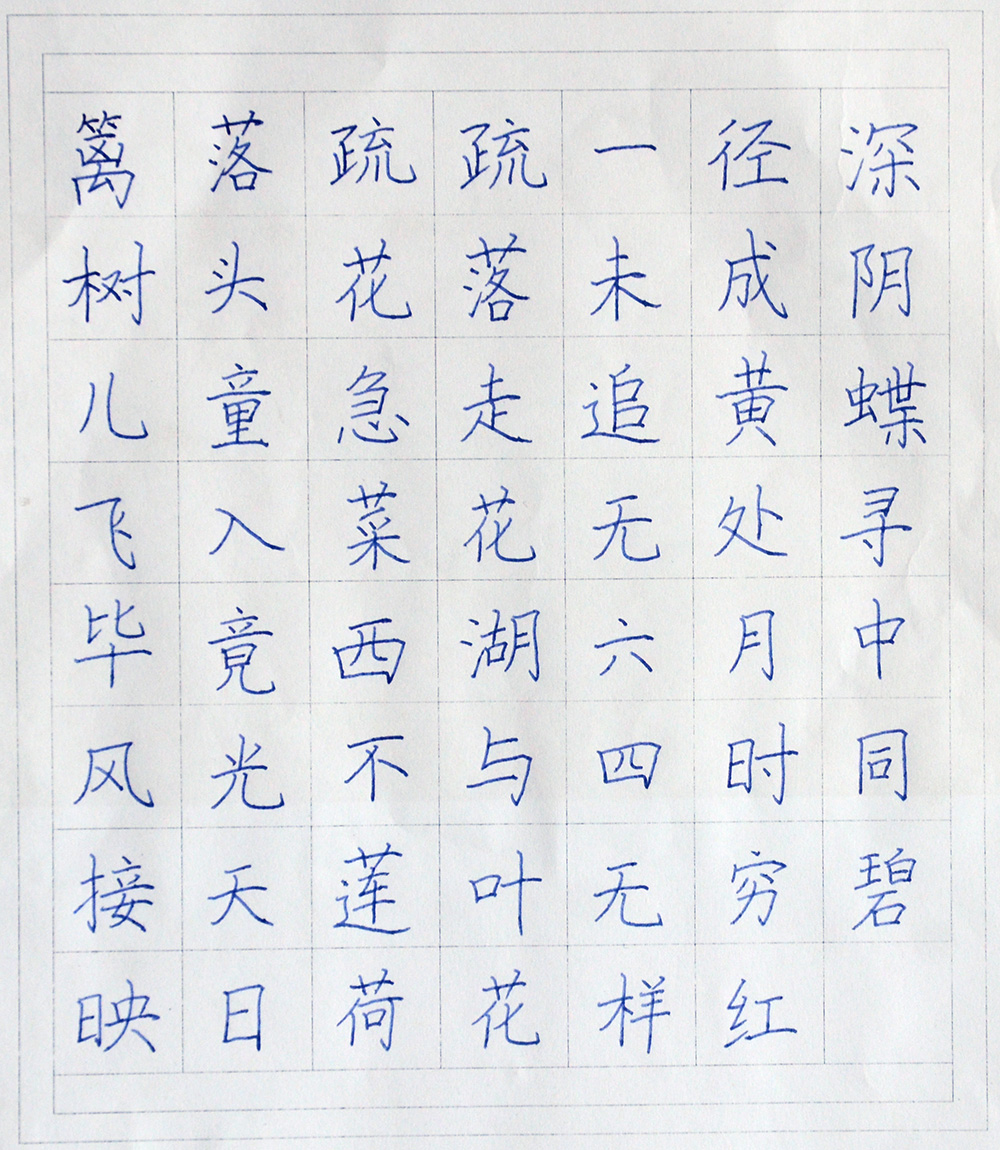 篱落疏疏一径深
树头花落未成阴
儿童急走追黄蝶
飞入菜花无处寻
毕竟西湖六月中
风光不与四时同
接天莲叶无穷碧
映日荷花样红